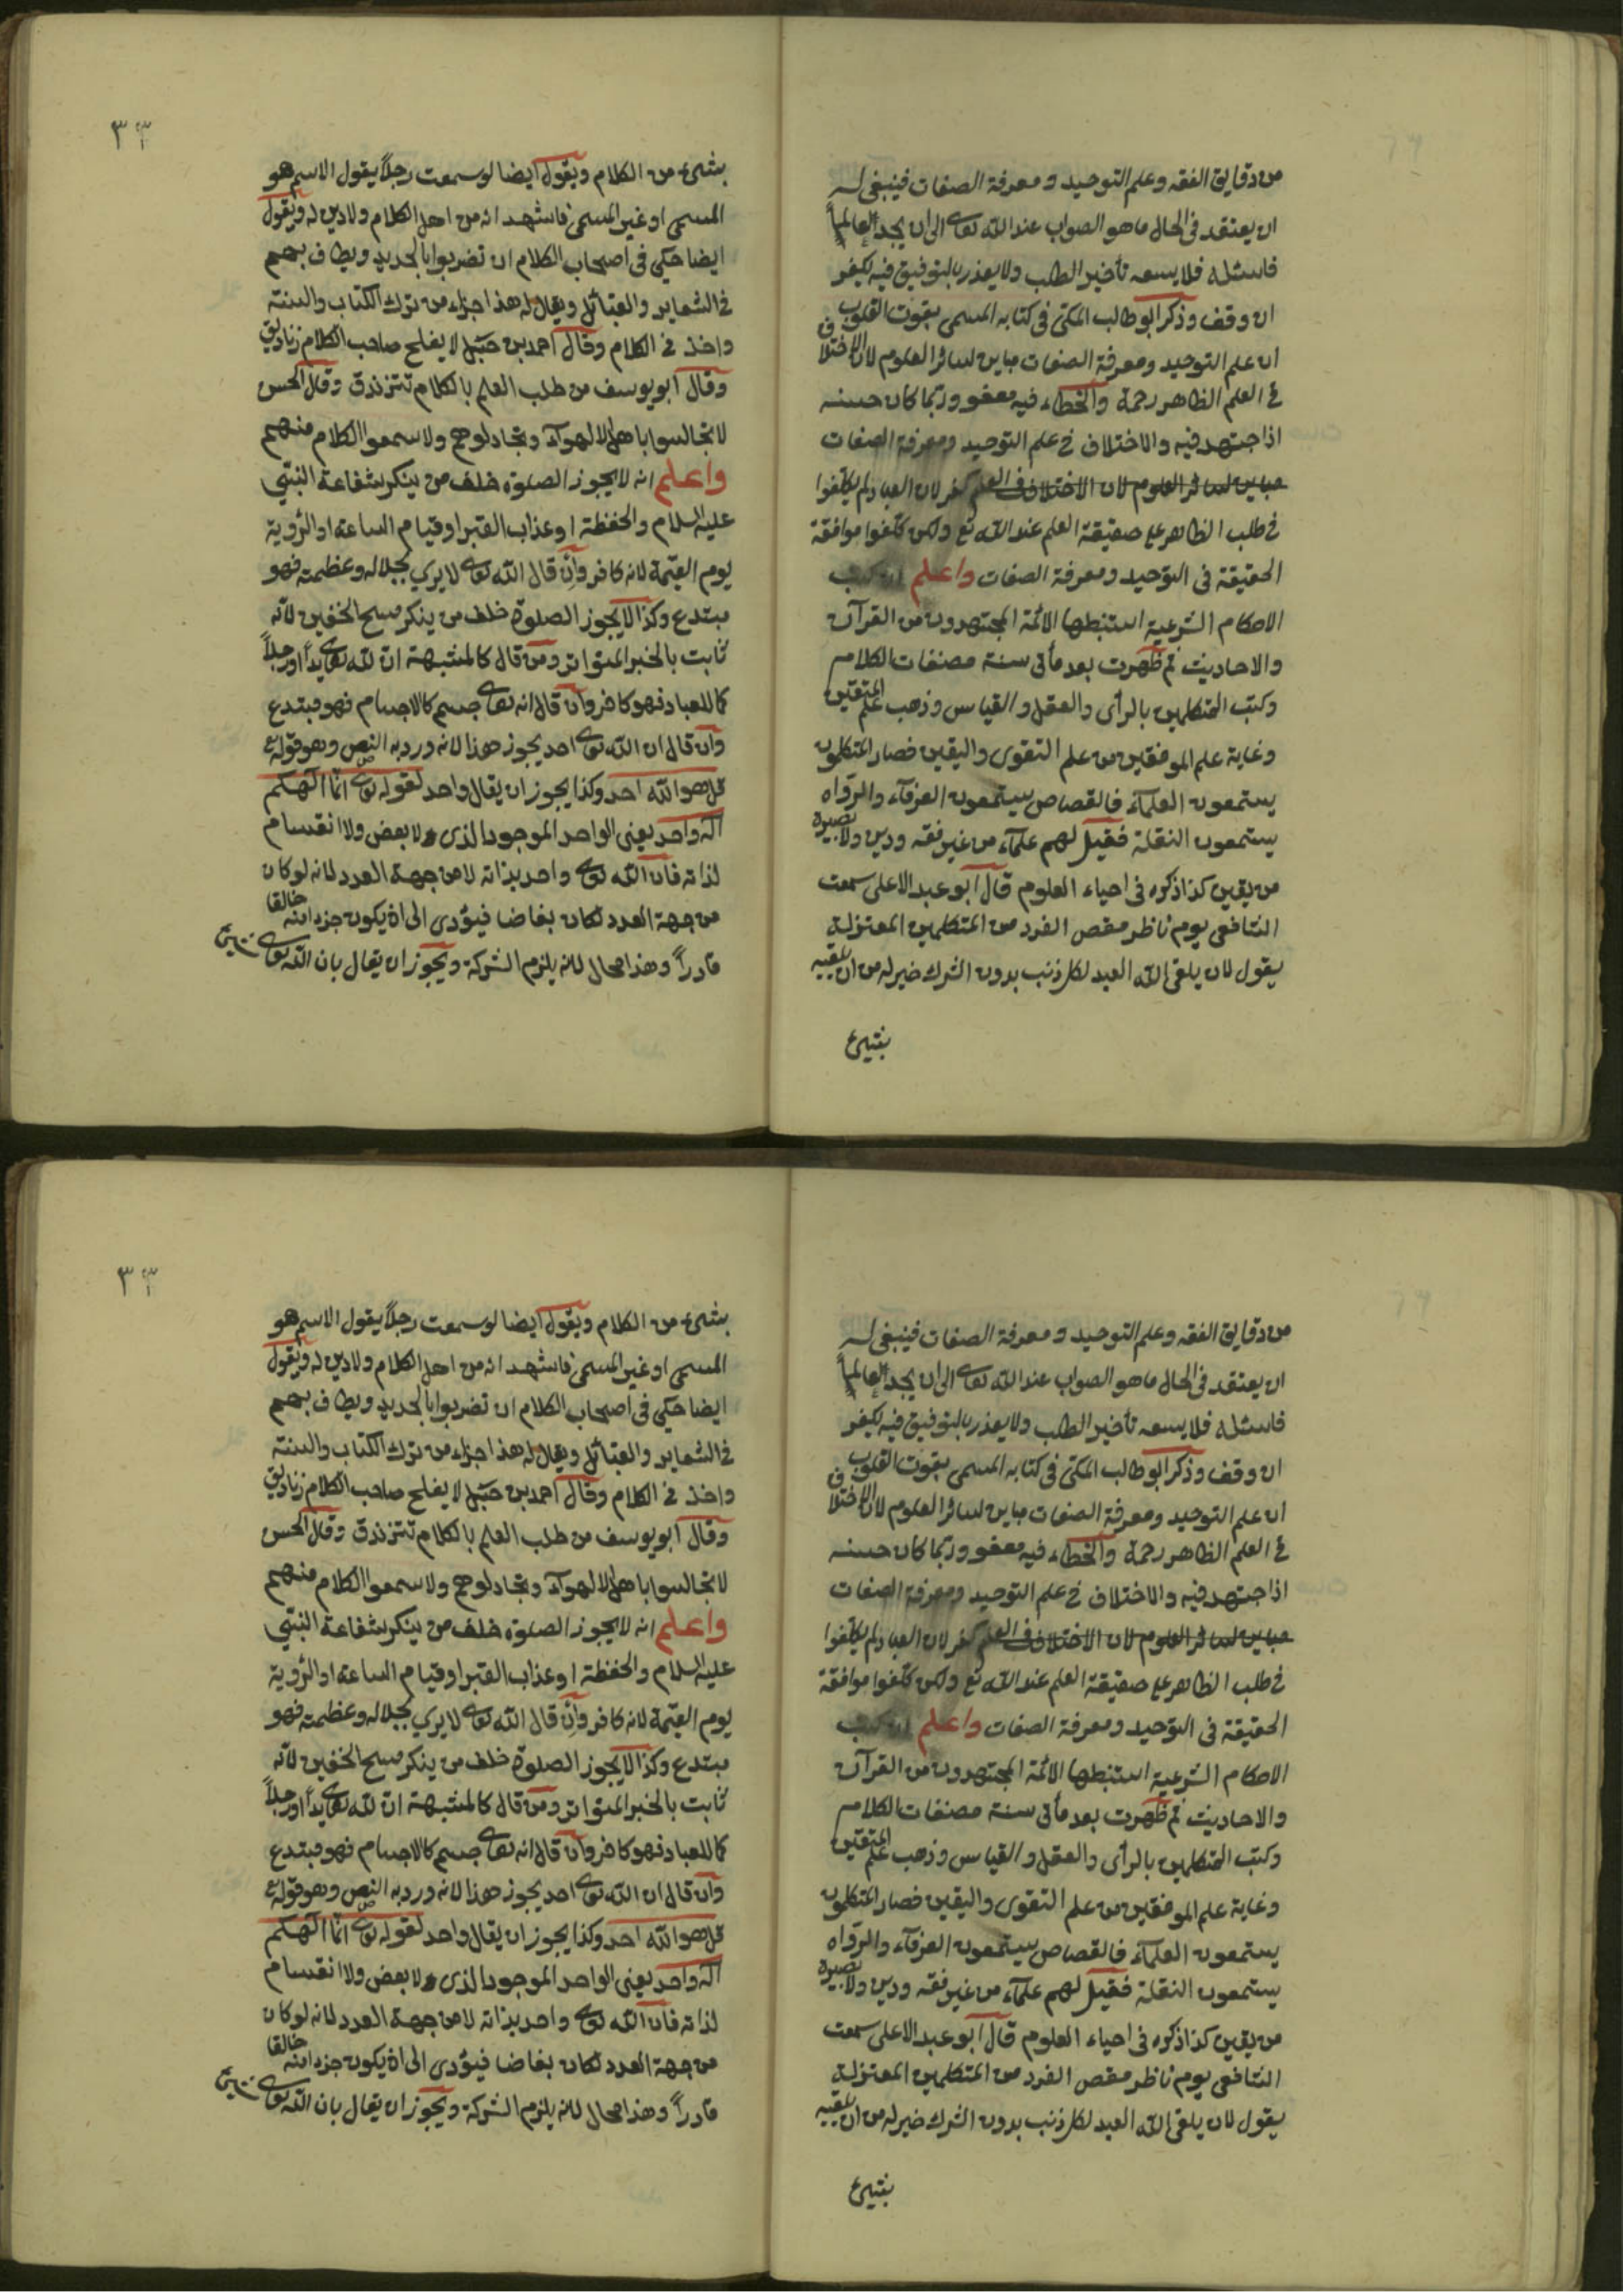 من دقايق الفقه وعلم التوحيد ومعرفة الصفات فينبغى له
ان يعتقد فى الحال ما هو الصواب عند الله تعالى الى ان يجد عالماً
فاسئله فلا يسعه تأخير الطلب ولا يعذر بالتوفيق فيه ليكفر
ان وقف وذكر ابو طالب المكى فى كتابه المسمى بقوت القلوب
ان علم التوحيد ومعرفة الصفات مباين لسائر العلوم لان الاختلاف
فى العلم الظاهر رحمة والخطاء فيه معفو وربما كان حسنه
اذا جتهد فيه والاختلاف فى علم التوحيد ومعرفة الصفات
مباين لسائر العلوم لان الاختلاف فى العلم كفر لان العباد لم يكلفوا
فى طلب الظاهر على حقيقة العلم عند الله تع ولكن كلفوا موافقة
الحقيقة فى التوحيد ومعرفة الصفات واعلم ان كتب
الاحكام الشرعية استنبطها الائمة المجتهدون من القرآن
والاحاديث ثم ظهرت بعد مأتى سنة مصنفات الكلام
وكتب المتكلمين بالرأى والعقل والقياس وذهب علم المتقين
وغاية علم الموفقين من علم التقوى واليقين فصار المتكلمون
يستمعون العلمآء فالقصاص يستمعون العرفآء والرواه
يستمعون النقلة فقيل لهم علمآء من غير فقه ودين ولا بصيرة
من يقين كذا ذكره فى احياء العلوم قال ابو عبد الاعلى سمعت
الشافعى يوم ناظر مقص الفرد من المتكلمين المعتزلية
يقول لان يلقى الله العبد لكل ذنب بدون الشرك خير له من ان يلقيه
بشيئ
٣٣
بشئ من الكلام ويقول ايضا لو سمعت رجلاً يقول الاسم هو
المسمى او غير المسمى فاشهد انه من اهل الكلام ولا دين له ويقول
ايضا حكمى فى اصحاب الكلام ان تضربوا بالحديد ويطاف بهم
فى الشعاير والقبائل ويقال له هذا جزاء من ترك الكتاب والسنة
واخذ فى الكلام وقال احمد بن حنبل لا يفلح صاحب الكلام زناديق
وقال ابو يوسف من طلب العلم بالكلام تتزندق وقال الحسن
لا تجالسوا باهل الاهوآء وتجادلوهم ولا سمعوا الكلام منهم
واعلم انه لا يجوز الصلوة خلف من ينكر شفاعة النبى
عليه السلام والحفظة او عذاب القبر او قيام الساعة او الرؤية
يوم القيمة لانه كافر وان قال الله تعالى لا يرى بجلاله وعظمته فهو
مبتدع وكذا لا يجوز الصلوة خلف من ينكر مسح الخفين لانه
ثابت بالخبر المتواتر ومن قال كالمشبهة ان لله تعالى يداً او رجلاً
كما للعباد فهو كافر وان قال انه تعالى جسم كالاجسام فهو مبتدع
وان قال ان الله تعالى احد يجوز هذا لانه ورد به النص وهو قوله تع
قل هو الله احد وكذا يجوز ان يقال واحد لقوله تعالى انما الهكم
اله واحد يعنى الواحد الموجود الذى لا بعض ولا انقسام
لذاته فان الله تعالى واحد بذاته لا من جهة العدد لانه لو كان
من جهة العدد لكان بغاضا فيؤدى الى ان يكون جزء منه خالقا
قادراً وهذا محال لانه يلزم الشركة ويجوز ان يقال بان الله تعالى شئ
من دقايق الفقه وعلم التوحيد ومعرفة الصفات فينبغى له
ان يعتقد فى الحال ما هو الصواب عند الله تعالى الى ان يجد عالماً
فاسئله فلا يسعه تأخير الطلب ولا يعذر بالتوفيق فيه ليكفر
ان وقف وذكر ابو طالب المكى فى كتابه المسمى بقوت القلوب
ان علم التوحيد ومعرفة الصفات مباين لسائر العلوم لان الاختلاف
فى العلم الظاهر رحمة والخطاء فيه معفو وربما كان حسنه
اذا جتهد فيه والاختلاف فى علم التوحيد ومعرفة الصفات
مباين لسائر العلوم لان الاختلاف فى العلم كفر لان العباد لم يكلفوا
فى طلب الظاهر على حقيقة العلم عند الله تع ولكن كلفوا موافقة
الحقيقة فى التوحيد ومعرفة الصفات واعلم ان كتب
الاحكام الشرعية استنبطها الائمة المجتهدون من القرآن
والاحاديث ثم ظهرت بعد مأتى سنة مصنفات الكلام
وكتب المتكلمين بالرأى والعقل والقياس وذهب علم المتقين
وغاية علم الموفقين من علم التقوى واليقين فصار المتكلمون
يستمعون العلمآء فالقصاص يستمعون العرفآء والرواه
يستمعون النقلة فقيل لهم علمآء من غير فقه ودين ولا بصيرة
من يقين كذا ذكره فى احياء العلوم قال ابو عبد الاعلى سمعت
الشافعى يوم ناظر مقص الفرد من المتكلمين المعتزلية
يقول لان يلقى الله العبد لكل ذنب بدون الشرك خير له من ان يلقيه
بشيئ
٣٣
بشئ من الكلام ويقول ايضا لو سمعت رجلاً يقول الاسم هو
المسمى او غير المسمى فاشهد انه من اهل الكلام ولا دين له ويقول
ايضا حكمى فى اصحاب الكلام ان تضربوا بالحديد ويطاف بهم
فى الشعاير والقبائل ويقال له هذا جزاء من ترك الكتاب والسنة
واخذ فى الكلام وقال احمد بن حنبل لا يفلح صاحب الكلام زناديق
وقال ابو يوسف من طلب العلم بالكلام تتزندق وقال الحسن
لا تجالسوا باهل الاهوآء وتجادلوهم ولا سمعوا الكلام منهم
واعلم انه لا يجوز الصلوة خلف من ينكر شفاعة النبى
عليه السلام والحفظة او عذاب القبر او قيام الساعة او الرؤية
يوم القيمة لانه كافر وان قال الله تعالى لا يرى بجلاله وعظمته فهو
مبتدع وكذا لا يجوز الصلوة خلف من ينكر مسح الخفين لانه
ثابت بالخبر المتواتر ومن قال كالمشبهة ان لله تعالى يداً او رجلاً
كما للعباد فهو كافر وان قال انه تعالى جسم كالاجسام فهو مبتدع
وان قال ان الله تعالى احد يجوز هذا لانه ورد به النص وهو قوله تع
قل هو الله احد وكذا يجوز ان يقال واحد لقوله تعالى انما الهكم
اله واحد يعنى الواحد الموجود الذى لا بعض ولا انقسام
لذاته فان الله تعالى واحد بذاته لا من جهة العدد لانه لو كان
من جهة العدد لكان بغاضا فيؤدى الى ان يكون جزء منه خالقا
قادراً وهذا محال لانه يلزم الشركة ويجوز ان يقال بان الله تعالى شئ